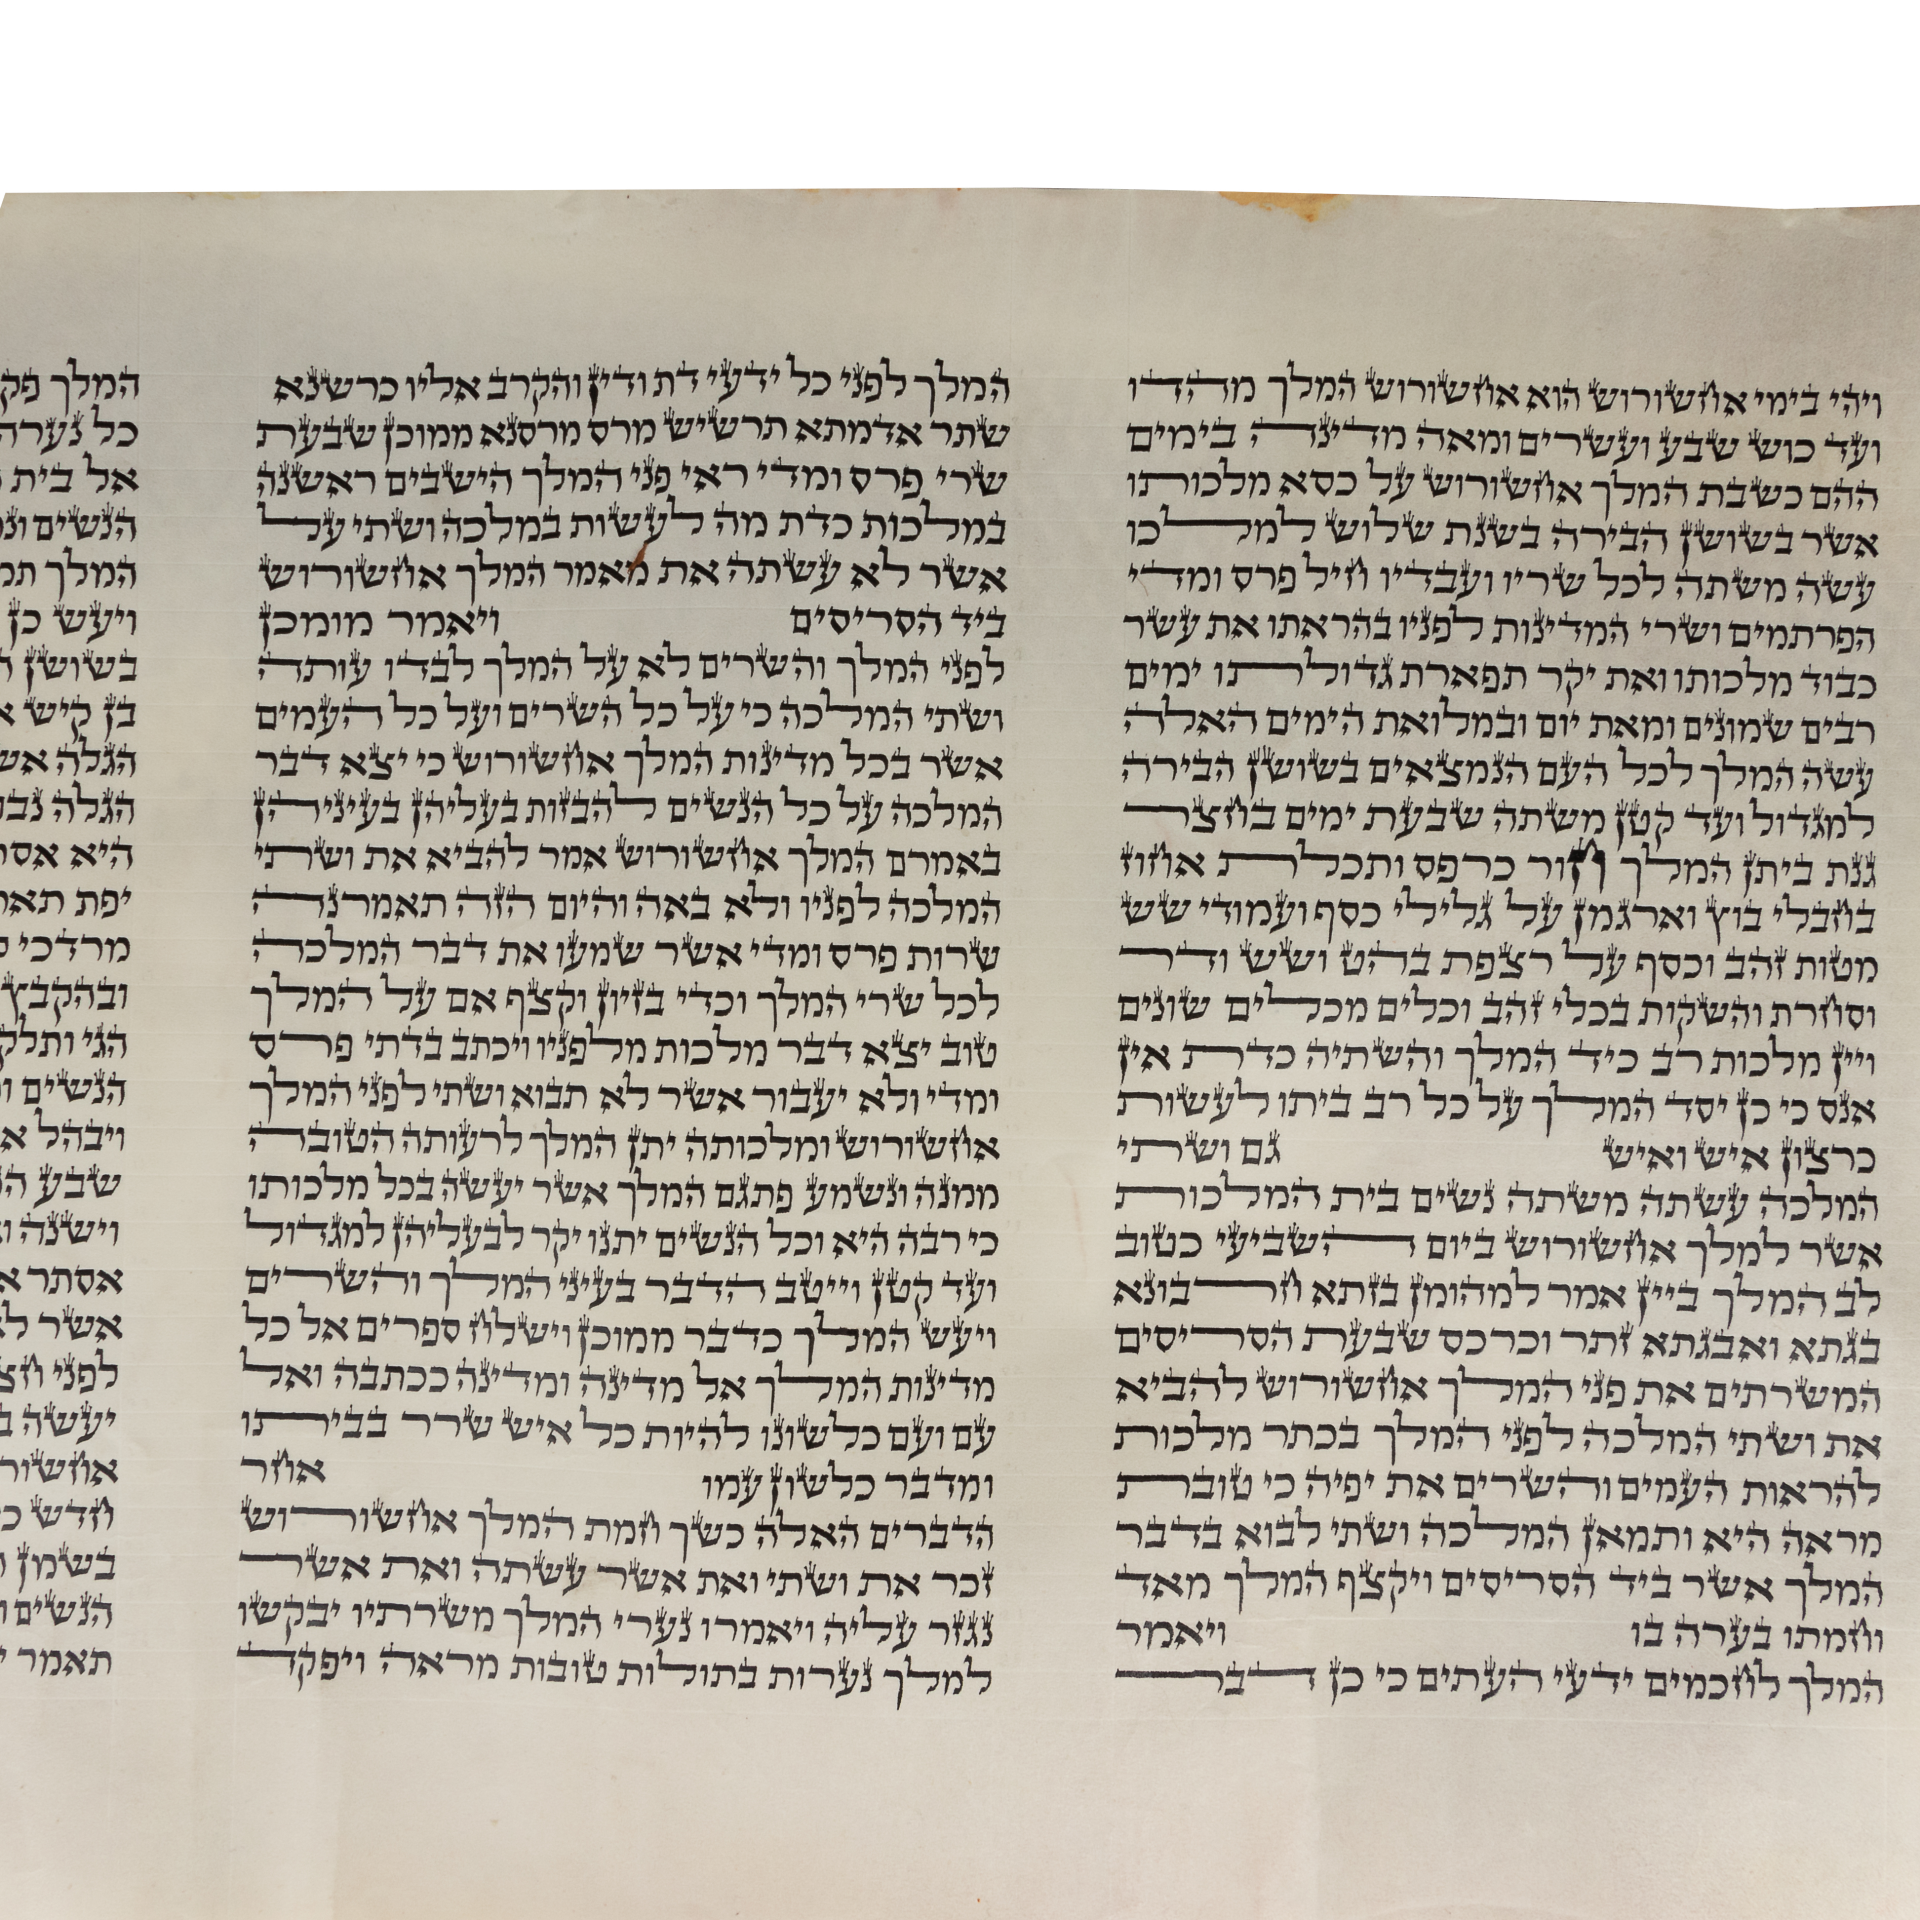 ויהי בימי אחשורוש הוא אחשורוש המלך מהדו
ועד כוש שבע ועשרים ומאה מדינה בימים
ההם כשבת המלך אחשורוש על כסא מלכותו
אשר בשושן הבירה בשנת שלוש למלכו
עשה משתה לכל שריו ועבדיו חיל פרס ומדי
הפרתמים ושרי המדינות לפניו בהראתו את עשר
כבוד מלכותו ואת יקר תפארת גדולתו ימים
רבים שמונים ומאת יום ובמלואת הימים האלה
עשה המלך לכל העם הנמצאים בשושן הבירה
למגדול ועד קטן משתה שבעת ימים בחצר
גנת ביתן המלך חור כרפס ותכלת אחוז
בחבלי בוץ וארגמן על גלילי כסף ועמודי שש
מטות זהב וכסף על רצפת בהט ושש ודר
וסחרת והשקות בכלי זהב וכלים מכלים שונים
ויין מלכות רב כיד המלך והשתיה כדת אין
אנס כי כן יסד המלך על כל רב ביתו לעשות
כרצון איש ואיש גם ושתי
המלכה עשתה משתה נשים בית המלכות
אשר למלך אחשורוש ביום השביעי כטוב
לב המלך ביין אמר למהומן בזתא חרבונא
בגתא ואבגתא זתר וכרכס שבעת הסריסים
המשרתים את פני המלך אחשורוש להביא
את ושתי המלכה לפני המלך בכתר מלכות
להראות העמים והשרים את יפיה כי טובת
מראה היא ותמאן המלכה ושתי לבוא בדבר
המלך אשר ביד הסריסים ויקצף המלך מאד
וחמתו בערה בו ויאמר
המלך לחכמים ידעי העתים כי כן דבר
המלך לפני כל ידעי דת ודין והקרב אליו כרשנא
שתר אדמתא תרשיש מרס מרסנא ממוכן שבעת
שרי פרס ומדי ראי פני המלך הישבים ראשנה
במלכות כדת מה לעשות במלכה ושתי על
אשר לא עשתה את מאמר המלך אחשורוש
ביד הסריסים ויאמר מומכן
לפני המלך והשרים לא על המלך לבדו עותה
ושתי המלכה כי על כל השרים ועל כל העמים
אשר בכל מדינות המלך אחשורוש כי יצא דבר
המלכה על כל הנשים להבזות בעליהן בעיניהן
באמרם המלך אחשורוש אמר להביא את ושתי
המלכה לפניו ולא באה והיום הזה תאמרנה
שרות פרס ומדי אשר שמעו את דבר המלכה
לכל שרי המלך וכדי בזיון וקצף אם על המלך
טוב יצא דבר מלכות מלפניו ויכתב בדתי פרס
ומדי ולא יעבור אשר לא תבוא ושתי לפני המלך
אחשורוש ומלכותה יתן המלך לרעותה הטובה
ממנה ונשמע פתגם המלך אשר יעשה בכל מלכותו
כי רבה היא וכל הנשים יתנו יקר לבעליהן למגדול
ועד קטן וייטב הדבר בעיני המלך והשרים
ויעש המלך כדבר ממוכן וישלח ספרים אל כל
מדינות המלך אל מדינה ומדינה ככתבה ואל
עם ועם כלשונו להיות כל איש שרר בביתו
ומדבר כלשון עמו אחר
הדברים האלה כשך חמת המלך אחשורוש
זכר את ושתי ואת אשר עשתה ואת אשר
נגזר עליה ויאמרו נערי המלך משרתיו יבקשו
למלך נערות בתולות טובות מראה ויפקד
המלך פק
כל נערה
אל בית
הנשים
המלך
ויעש כן
בשושן
בן קיש
הגלה
הגלה
היא
יפת
מרדכי
ובהקבץ
הגי
הנשים
ויבהל
שבע
וישנה
אסתר
אשר
לפני
יעשה
אחשור
חדש
בשמן
הנשים
תאמר